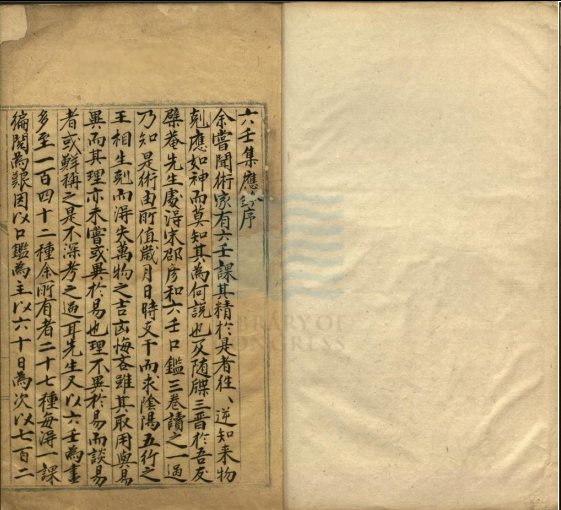 六壬集應鈐序
余嘗聞術家有六壬課其精於是者往、逆知来物
尅應如神而莫知其為何説也及随牒三晋於吾友
檗菴先生處淂宋邵彦和六壬口鑑三卷讀之一過
乃知是術由所值歳月日時支干而求陰陽五行之
王相生尅而淂失萬物之吉凶悔吝雖其取用與易
異而其理亦未嘗或異於易也理不異於易而談易
者或鮮稱之是不深考之過耳先生又以六壬為書
多至一百四十二種余所有者二十七種每淂一課
徧閲為艱因以口鑑為主以六十日為次以七百二
LIBRARY OF
CONGRESS